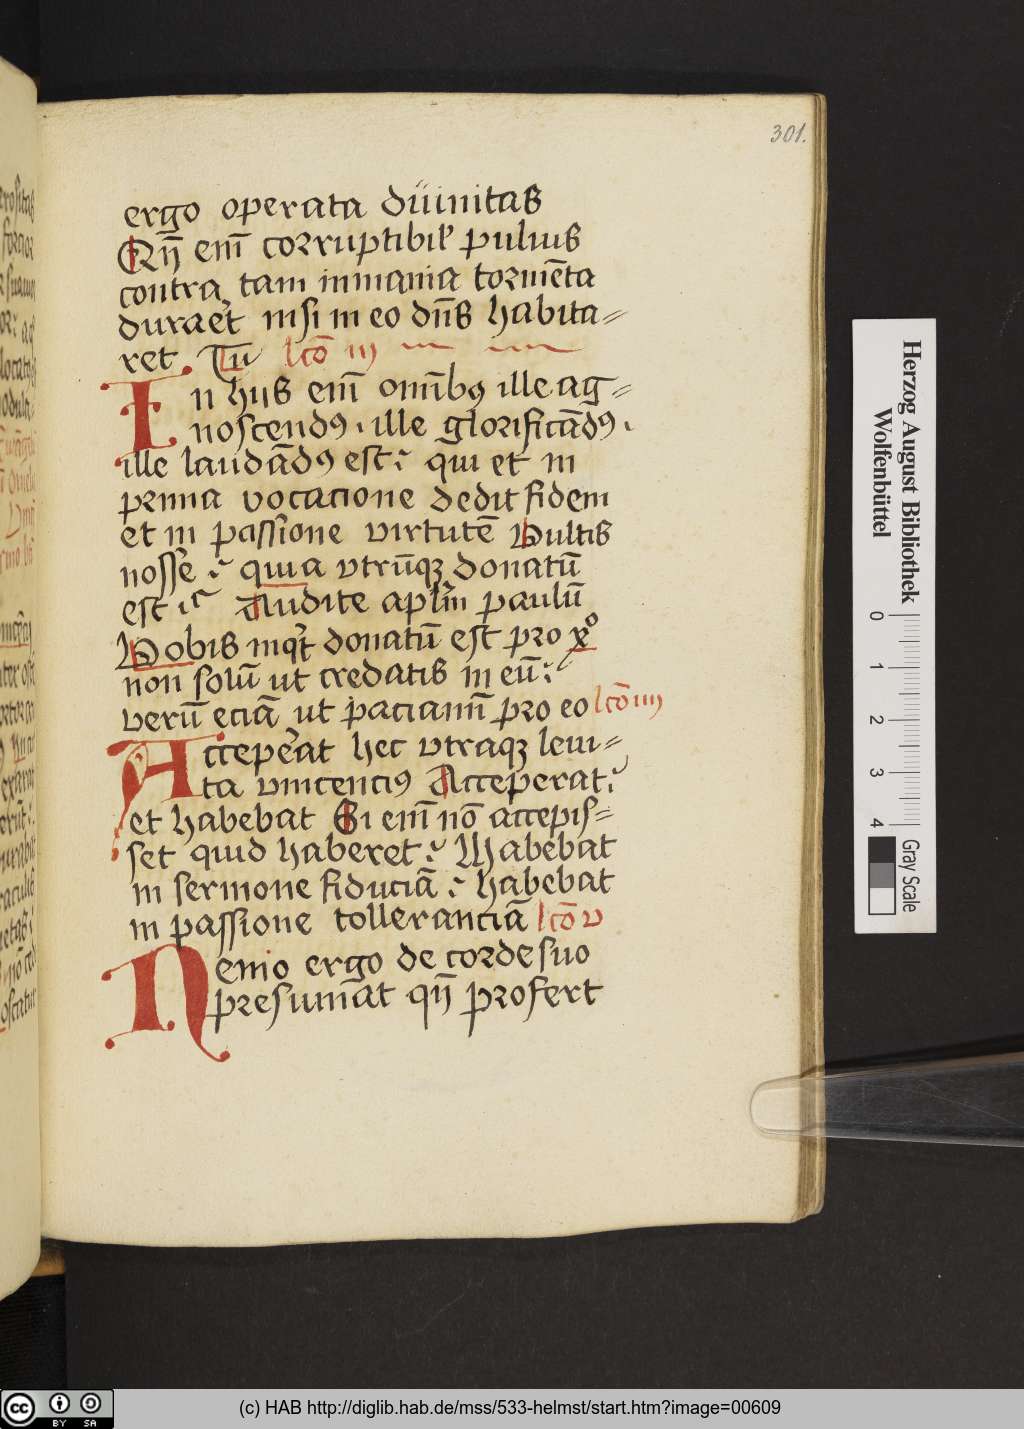 301.
ergo operata diuinitas
Qn̄ em̄ corruptibil' puluis
contra tam inmania tormēta
duraret nisi in eo dn̄s habita⸗
ret Tu lcō iij
In hijs em̄ om̄ibꝯ ille ag⸗
noscendꝯ · ille glorificādꝯ ·
ille laudādꝯ est : qui et in
prima vocacione dedit fidem
et in passione virtutē Vultis
nosse : quia vtrūqꝫ donatū
est : Audite aplm̄ paulū
Vobis inqͥt donatū est pro xp̄o
non solū ut credatis in eū :
verū eciā ut paciamī pro eo lcō iiij
Acceperat hec vtraqꝫ leui⸗
ta vincencius Acceperat :
et habebat Si em̄ nō accepis⸗
set quid haberet : Habebat
in sermone fiduciā : habebat
in passione tolleranciā lcō v
Nemo ergo de corde suo
presumat qn̄ profert
Herzog August Bibliothek
Wolfenbüttel
0 1 2 3 4
Gray Scale
cc BY SA
(c) HAB http://diglib.hab.de/mss/533-helmst/start.htm?image=00609